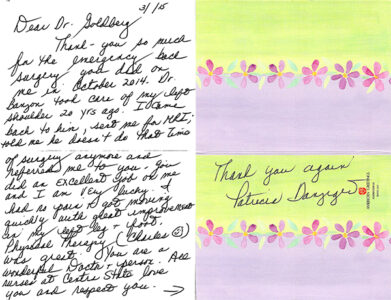 3/15
Dear Dr. Goldberg
Thank-you so much
for the emergency back
surgery you did on
me in October 2014. Dr.
took care of my left
shoulder 20 yrs ago. I came
back to him, sent me for MRI,
told me he doesn't do that time
of surgery anymore and
referred me to you. You
did an EXCellent job on me
and I am very lucky. I
had no pain & got moving
quickly with great improvement
in my left leg + foot.
Physical Therapy
was great. You are a
wonderful Doctor + person. All
nurses at Centra State love
you and respect you. →
Thank you again
Patricia Danziger